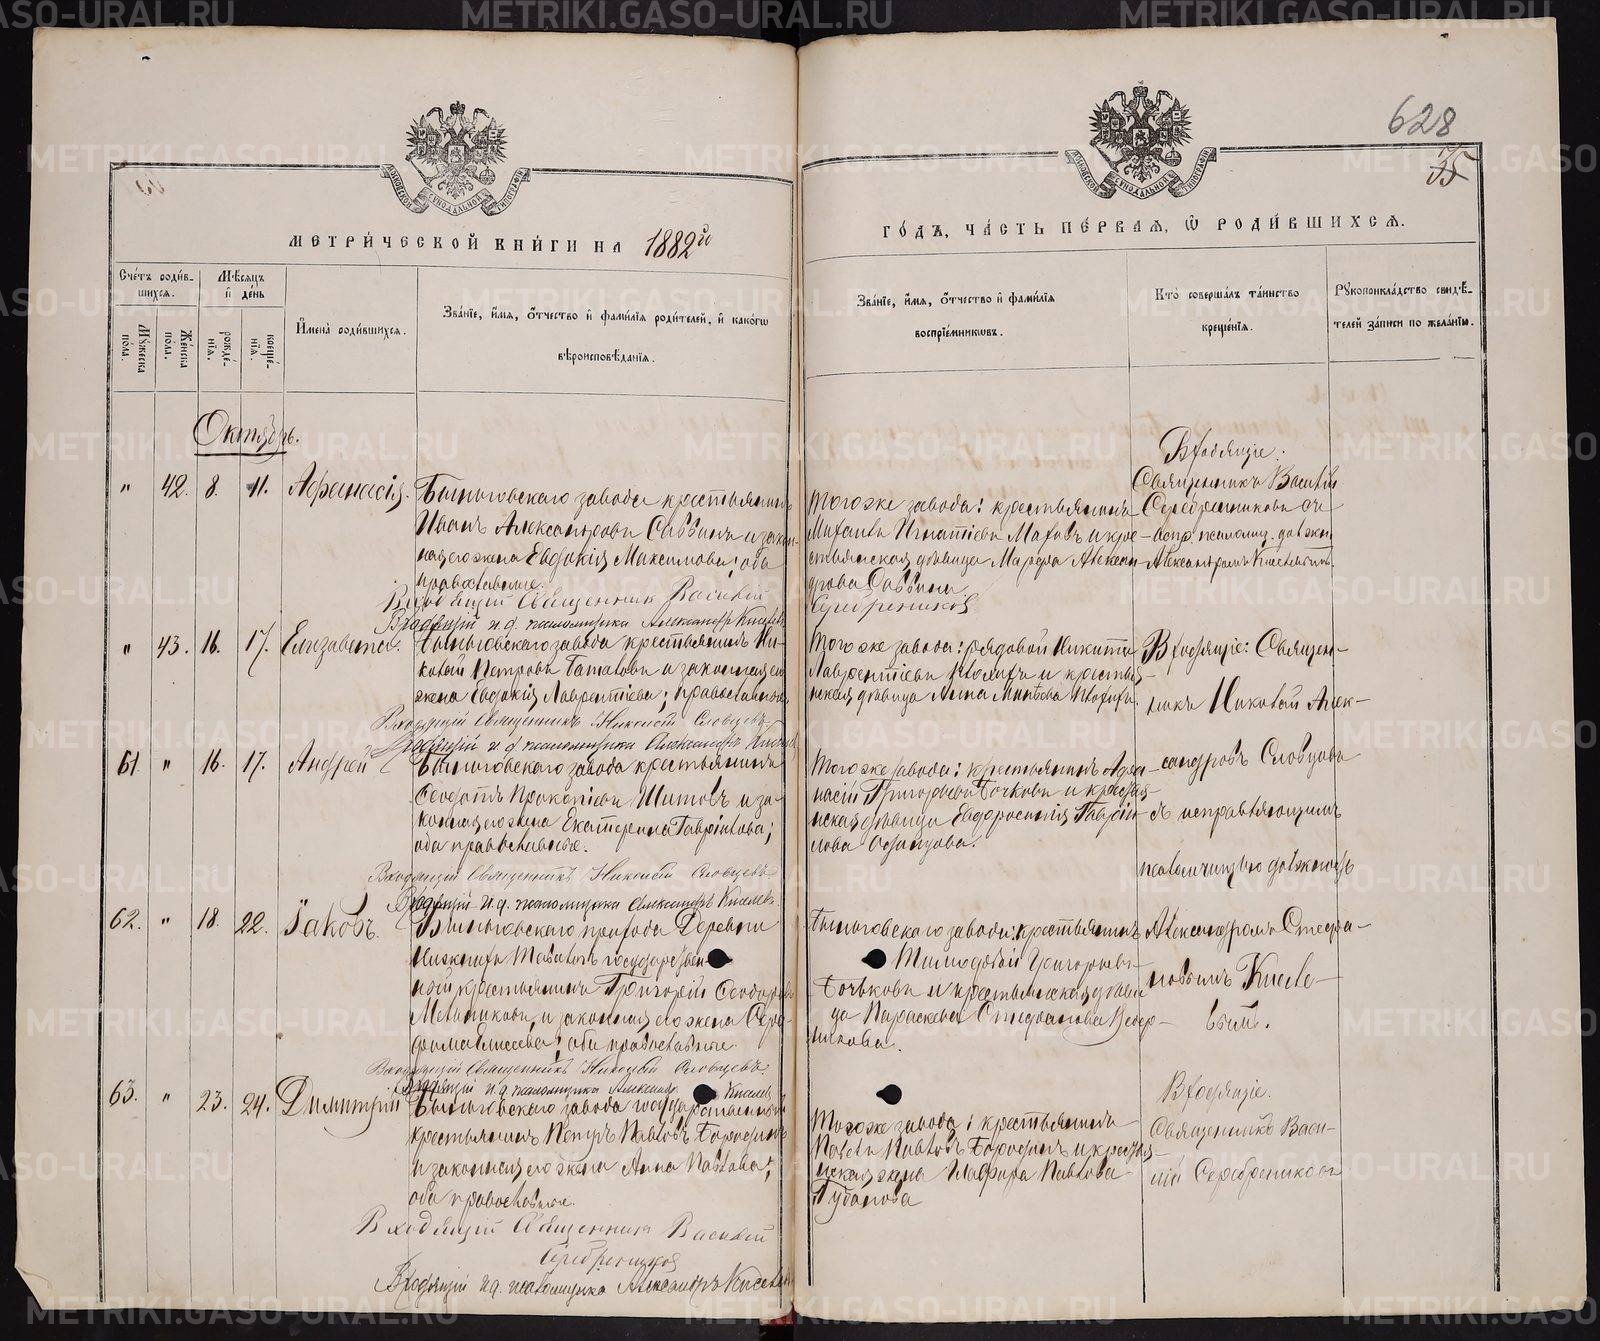 628
35
МЕТРИ́ЧЕСКОЙ КНИ́ГИ НА 1882й
ГО́ДЪ, ЧА́СТЬ ПЕ́РВАЯ, Ѡ҆ РОДИ́ВШИХСЯ.
Сче́тъ роди́в-
шихся.
Му́жеска по́ла.
Же́нска по́ла.
Мѣ́сяцъ и҆ де́нь
рожде́-
нія.
креще́-
нія.
И҆мена̀ роди́вшихся.
Зва́ніе, и҆́мя, ѻ҆́тчество и҆ фами́лія роди́телей, и҆ како́гѡ
вѣроисповѣ́данія.
Зва́ніе, и҆́мя, ѻ҆́тчество и҆ фами́лія
воспріе́мниковъ.
Кто̀ соверша́лъ та́инство
креще́нія.
Рꙋкоприкла́дство свидѣ́-
телей за́писи по жела́нію.
Октябрь.
" 42. 8. 11. Афанасія.
Быньговскаго завода крестьянинъ
Иванъ Александровъ Саввинъ и закон-
ная его жена Евдокія Максимова; оба
православные.
Входящій Священникъ Василій
Серебренниковъ
Входящій и. д. псаломщика Александръ Киселевъ
Того же завода: крестьянинъ
Михаилъ Игнатіевъ Маховъ и кре-
стьянская дѣвица Марѳа Алексан-
дрова Саввина
Входящіе:
Священникъ Василій
Серебренниковъ съ
испр. псаломщ. должн.
Александромъ Киселевымъ.
" 43. 16. 17. Елизавета.
Быньговскаго завода крестьянинъ Ни-
колай Петровъ и законная его
жена Евдокія Лаврентіева; православные
Входящій Священникъ Николай Словцовъ
Входящій и. д. псаломщика Александръ Киселевъ
Того же завода: рядовой Никита
Лаврентіевъ и крестьян-
ская дѣвица Анна
Входящіе: Священ-
никъ Николай Алек-
сандровъ Словцовъ
съ исправляющимъ
псаломщическую должность
Александромъ Стефа-
новымъ Киселе-
вымъ.
61 " 16. 17. Андрей
Быньговскаго завода крестьянинъ
Ѳеодотъ Прокопіевъ Шитовъ и за-
конная его жена Екатерина Гавріилова;
оба православные.
Входящій Священникъ Николай Словцовъ
Входящій и. д. псаломщика Александръ Киселевъ
Того же завода: крестьянинъ Аѳа-
насій Григорьевъ Бочковъ и крестьян-
ская дѣвица Евфросинія Гавріи-
лова
62. " 18. 22. Іаковъ.
Быньговскаго прихода Деревни
Нижнихъ Тавологъ государствен
ной крестьянинъ Григорій Ѳеодоровъ
Мельниковъ, и законная его жена Сера-
фима Елисеева; оба православные.
Входящій Священникъ Николай Словцовъ
Входящій и д. псаломщика Александръ Киселевъ
Быньговскаго завода: крестьянинъ
Тимоѳей Григорьевъ
Бочьковъ и крестьянская дѣви
ца Параскева Стефанова
63. " 23. 24. Димитрій
Быньговскаго завода государственный
крестьянинъ Петръ Павловъ Бороѳинъ
и законная его жена Анна Павлова;
оба православные.
Входящій Священникъ Василій
Серебренниковъ
Входящій и д. псаломщика Александръ Киселевъ
Того же завода: крестьянинъ
Павелъ Павловъ Бороѳинъ и крестьян
ская жена Глафира Павлова
Губанова
Входящіе.
Священникъ Васи-
лій Серебренниковъ
METRIKI.GASO-URAL.RU